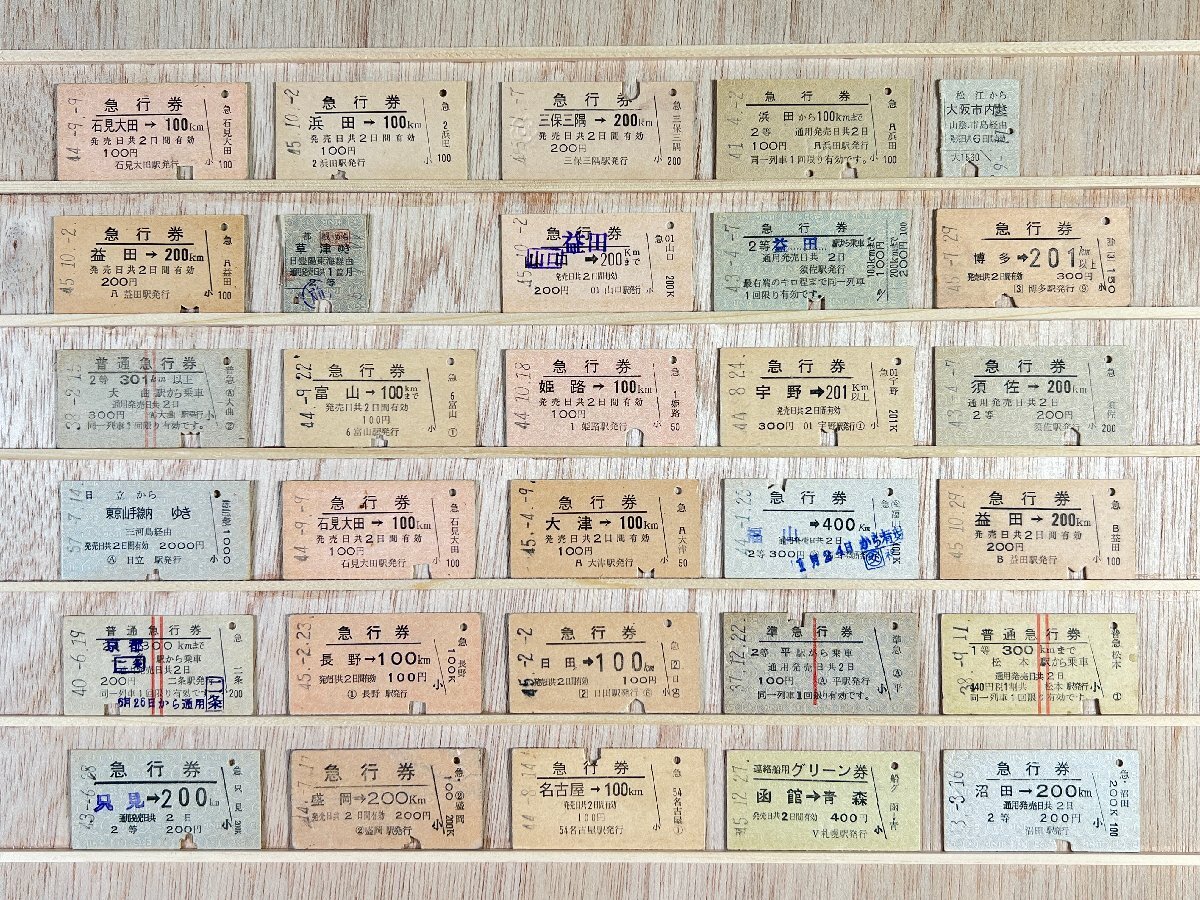 44.-9.-9
急行券
石見大田→100km
発売日共2日間有効
100円
石見大田駅発行
小
急 石見大田
100
45.10.-2
急行券
浜田→100km
発売日共2日間有効
100円
2浜田駅発行
小
急 2浜田
100
急行券
三保三隅→200km
発売日共2日間有効
200円
三保三隅駅発行
小
急 三保三隅
200
急行券
浜田から100kmまで
2等 通用発売日共2日
100円 A浜田駅発行
同一列車1回限り有効です。
急 A浜田
100
松江から
大阪市内ゆき
45.10.-2
急行券
益田→200km
発売日共2日間有効
200円
A 益田駅発行
小
急 A益田
100
草津ゆき
2等
急行券
益田
山口
200Kmまで
発売日共2日間有効
200円 01 山口駅発行
小
急 01山口
200K
43.-4.-7
急行券
2等 益田 駅から乗車
通用発売日共2日
須佐駅発行
最右端のキロ程まで同一列車
1回限り有効です。
100kmまで 100円
200kmまで 200円
45.-7.29
急行券
博多→201km以上
発売日共2日間有効 300円
(3)博多駅発行 ⑨
小
急(3)
150
普通急行券
2等 301km以上
大曲 駅から乗車
通用発売日共2日
300円 Ⓐ大曲駅発行
同一列車1回限り有効です。
44.-9.22
急行券
富山→100kmまで
発売日共2日間有効
100円
6富山駅発行
小
急 6富山 ①
44.10.18
急行券
姫路→100km
発売日共2日間有効
100円
1 姫路駅発行
小
急 1姫路
50
44.8.24
急行券
宇野→201Km以上
発売日共2日間有効
300円 01 宇野駅発行①
小
急 01宇野
201K
43.-4.-7
急行券
須佐→200km
通用発売日共2日
2等 200円
須佐駅発行
小
200
日立から
東京山手線内 ゆき
三河島経由
発売日共2日間有効 2000円
Ⓐ 日立 駅発行
1000
44.-9.-9
急行券
石見大田→100km
発売日共2日間有効
100円
石見大田駅発行
小
急 石見大田
100
45.-4.-9
急行券
大津→100km
発売日共2日間有効
100円
A 大津駅発行
小
急 A大津
50
急行券
→400Km
通用発売日共2日
2等 300円
1月24日から有効
45.10.29
急行券
益田→200km
発売日共2日間有効
200円
B 益田駅発行
小
急 B益田
100
40.-6.19
普通急行券
京都
二条
300kmまで
駅から乗車
通用発売日共2日
200円 二条駅発行
同一列車1回限り有効です。
6月26日から通用
二条
小
急 二条
200
45.-2.23
急行券
長野→100km
発売日共2日間有効 100円
①長野駅発行
小
急 長野
100K
45.-2.-2
急行券
日田→100km
発売日共2日間有効 100円
(2)日田駅発行 ⑥
小
急 (2)日田
37.12.22
準急行券
2等 平駅から乗車
通用発売日共2日
100円 Ⓐ 平駅発行
同一列車1回限り有効です。
小
準急 Ⓐ平
38.-9.11
普通急行券
1等 300kmまで
松本 駅から乗車
通用発売日共2日
440円税1割共 松本駅発行
同一列車1回限り有効です。
小
普急 松本 ①
急行券
只見→200km
通用発売日共2日
2等 200円
小
急 只見
20K
急行券
盛岡→200Km
発売日共2日間有効 200円
②盛岡駅発行
小
急 ②盛岡
100
200K
44.8.14
急行券
名古屋→100km
発売日共2日間有効
100円
54名古屋駅発行
小
急 54名古屋①
45.12.27
連絡船用グリーン券
函館→青森
発売日共2日間有効 400円
V札幌駅発行
小
船グ 函・青
急行券
沼田→200km
通用発売日共2日
2等 200円
沼田駅発行
小
急・沼田
200K
100